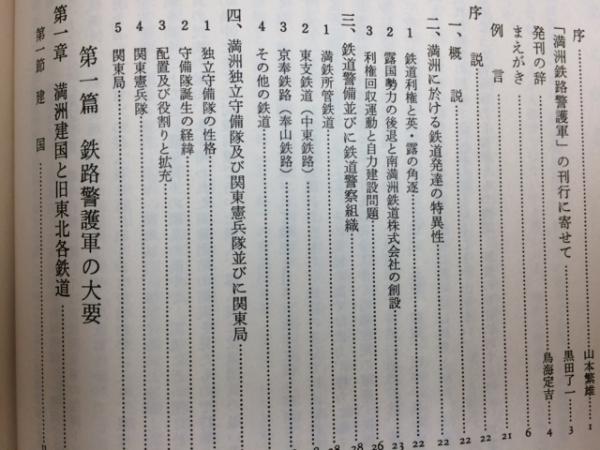 序……山本繁雄…1
「満洲鉄路警護軍」の刊行に寄せて……黒田了一…3
発刊の辞……鳥海定吉…4
まえがき……6
例言……21
序説……22
一、概説……22
二、満洲に於ける鉄道発達の特異性……22
1 鉄道利権と英・露の角逐……22
2 露国勢力の後退と南満洲鉄道株式会社の創設……23
3 利権回収運動と自力建設問題……26
三、鉄道警備並びに鉄道警察組織……28
1 満鉄所管鉄道……28
2 東支鉄道（中東鉄路）
3 京奉鉄路（奉山鉄路）
4 その他の鉄道
四、満洲独立守備隊及び関東憲兵隊並びに関東局
1 独立守備隊の性格
2 守備隊誕生の経緯
3 配置及び役割りと拡充
4 関東憲兵隊
5 関東局
第一篇 鉄路警護軍の大要
第一章 満洲建国と旧東北各鉄道
第一節 建国